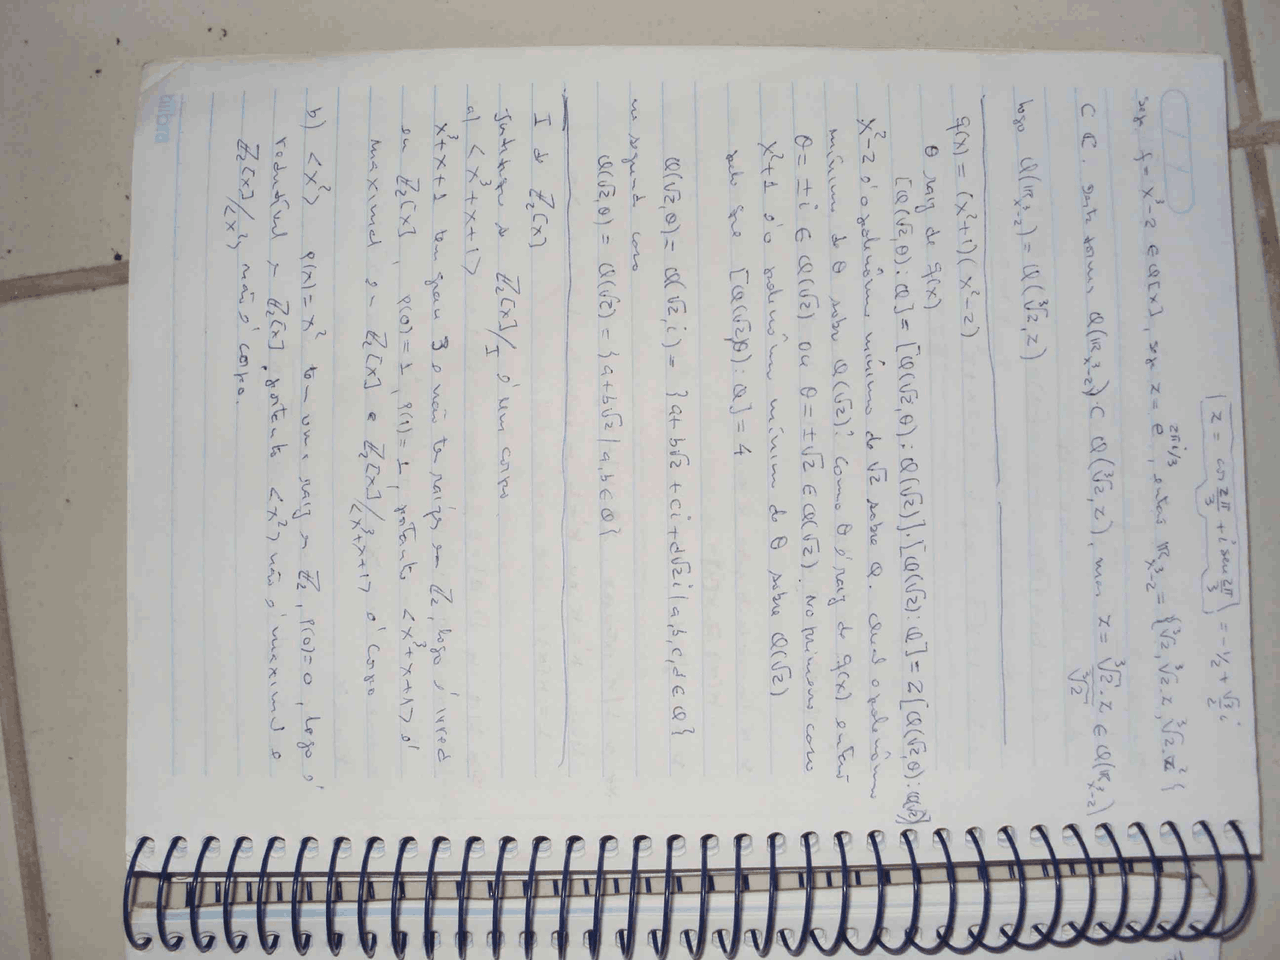 z = cos 2π/3 + i sen 2π/3 = -1/2 + √3/2 i
seja f = x³-2 ∈ Q[x], seja z = e^{2πi/3}, então IR_{x³-2} = {∛2, ∛2.z, ∛2.z²}
⊂ C. Assim temos Q(IR_{x³-2}) ⊂ Q(∛2, z), mas z = ∛2.z/∛2 ∈ Q(IR_{x³-2})
logo Q(IR_{x³-2}) = Q(∛2, z)
q(x) = (x²+1)(x²-2)
θ raiz de q(x)
[Q(√2,θ):Q] = [Q(√2,θ):Q(√2)].[Q(√2):Q] = 2[Q(√2,θ):Q(√2)]
x²-2 é o polinômio mínimo de √2 sobre Q. Qual o polinômio
mínimo de θ sobre Q(√2)? como θ é raiz de q(x) então
θ = ±i ∈ Q(√2) ou θ = ±√2 ∈ Q(√2). No primeiro caso
x²+1 é o polinômio mínimo de θ sobre Q(√2)
pelo que [Q(√2,θ):Q] = 4
Q(√2,θ) = Q(√2,i) = {a+b√2+ci+d√2i | a,b,c,d ∈ Q}
no segundo caso
Q(√2,θ) = Q(√2) = {a+b√2 | a,b ∈ Q}
I de Z₂[x]
Justifique se Z₂[x]/I é um corpo.
a) <x³+x+1>
x³+x+1 tem grau 3 e não tem raízes em Z₂, logo é irred
em Z₂[x], p(0)=1, p(1)=1, portanto <x³+x+1> é
maximal em Z₂[x] e Z₂[x]/<x³+x+1> é corpo
b) <x²> p(x)=x² tem uma raiz em Z₂, p(0)=0, logo é
redutível em Z₂[x], portanto <x²> não é maximal e
Z₂[x]/<x²> não é corpo.